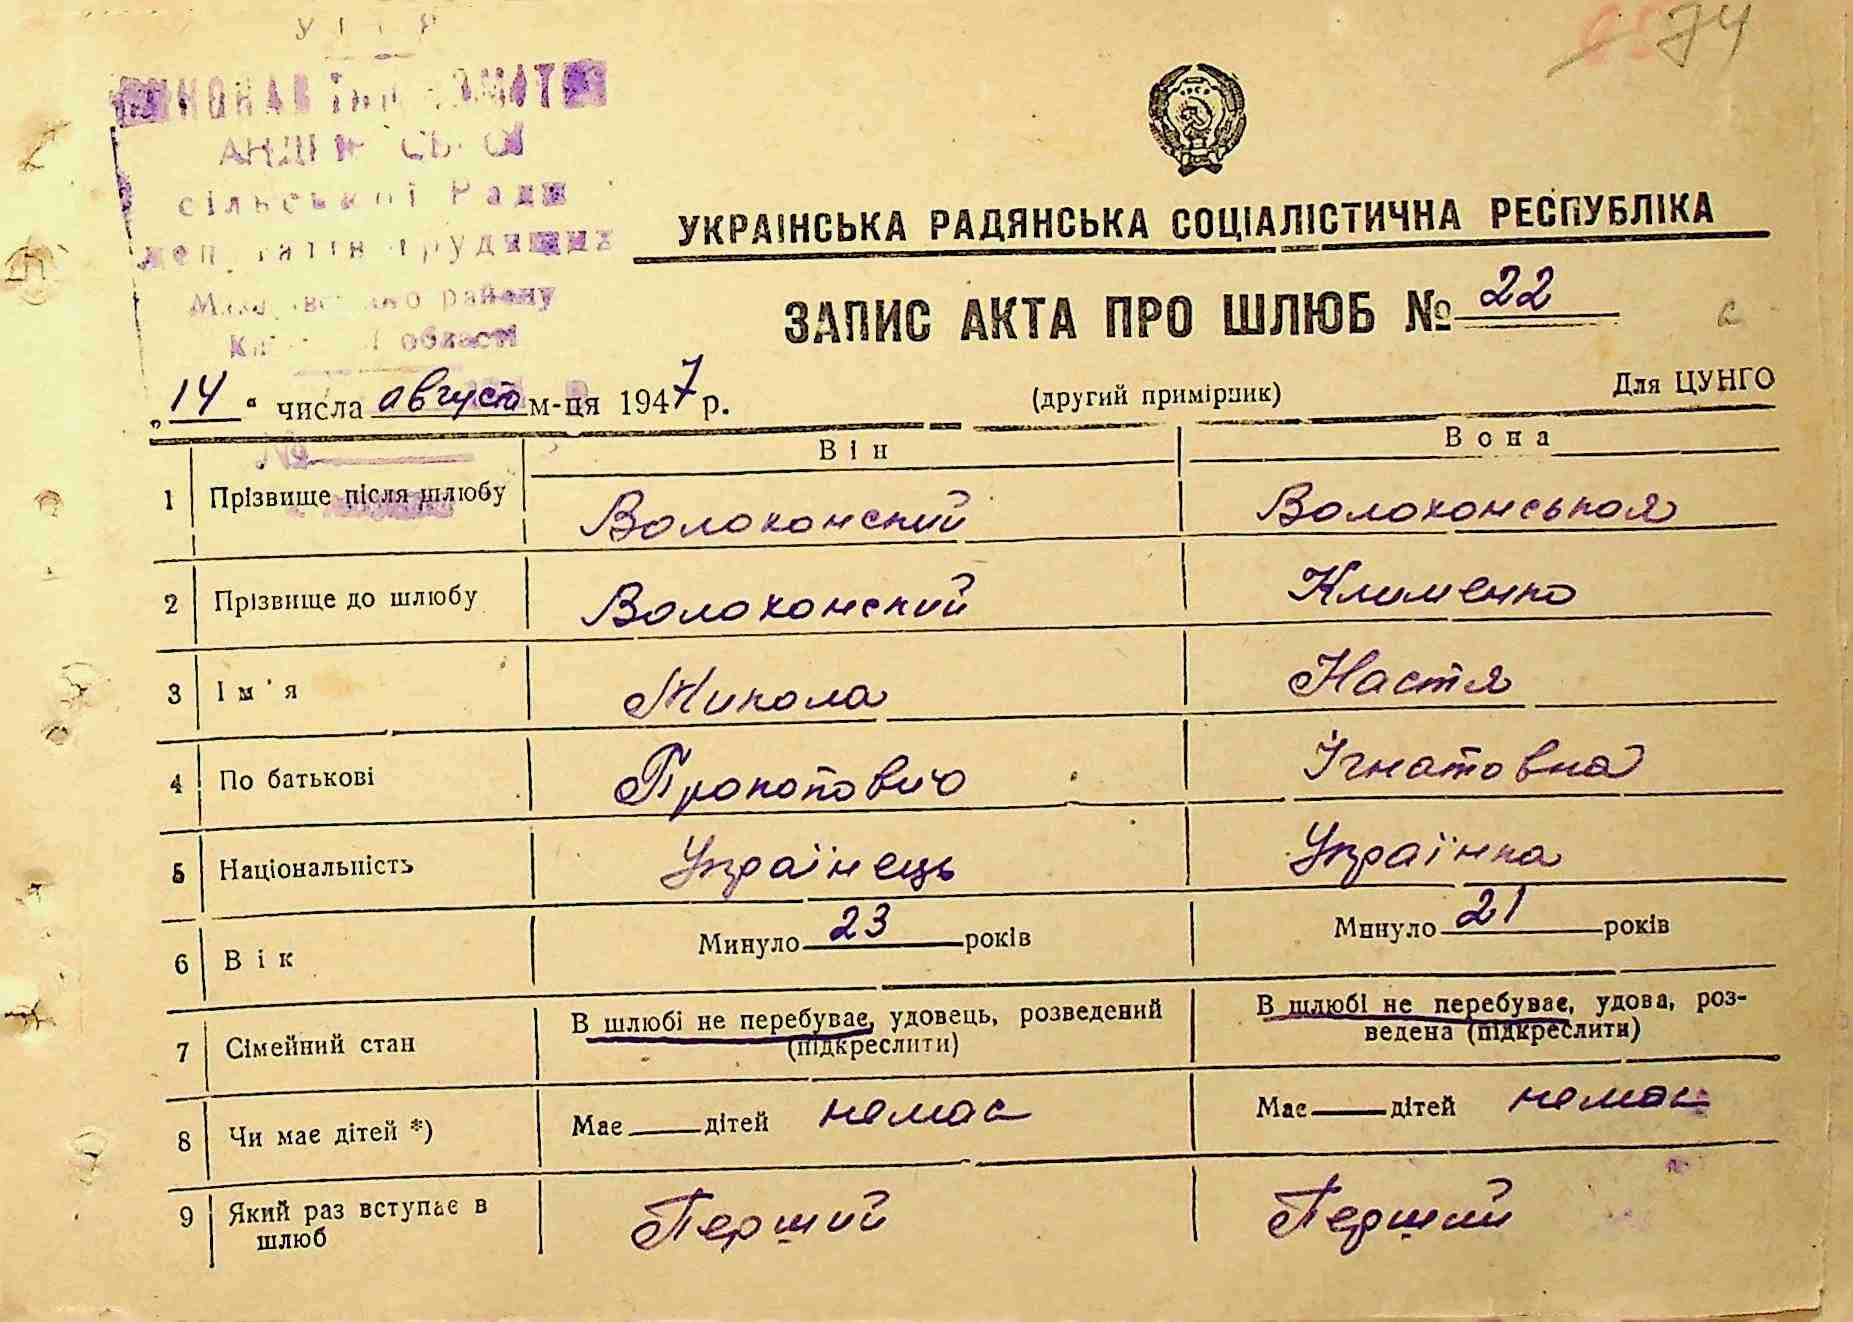 74
сільської Ради
депутатів трудящих
району
області
УКРАЇНСЬКА РАДЯНСЬКА СОЦІАЛІСТИЧНА РЕСПУБЛІКА
ЗАПИС АКТА ПРО ШЛЮБ № 22
„14“ числа августа м-ця 1947 р. (другий примірник) Для ЦУНГО
№
Він Вона
1 Прізвище після шлюбу Волоконский Волоконськая
2 Прізвище до шлюбу Волоконский Клименко
3 Ім'я Микола Настя
4 По батькові Прокопович Ігнатовна
5 Національність Українець Українка
6 Вік Минуло 23 років Минуло 21 років
7 Сімейний стан В шлюбі не перебуває, удовець, розведений В шлюбі не перебуває, удова, роз-
(підкреслити) ведена (підкреслити)
8 Чи має дітей *) Має дітей немає Має дітей немає
9 Який раз вступає в Перший Перший
шлюб